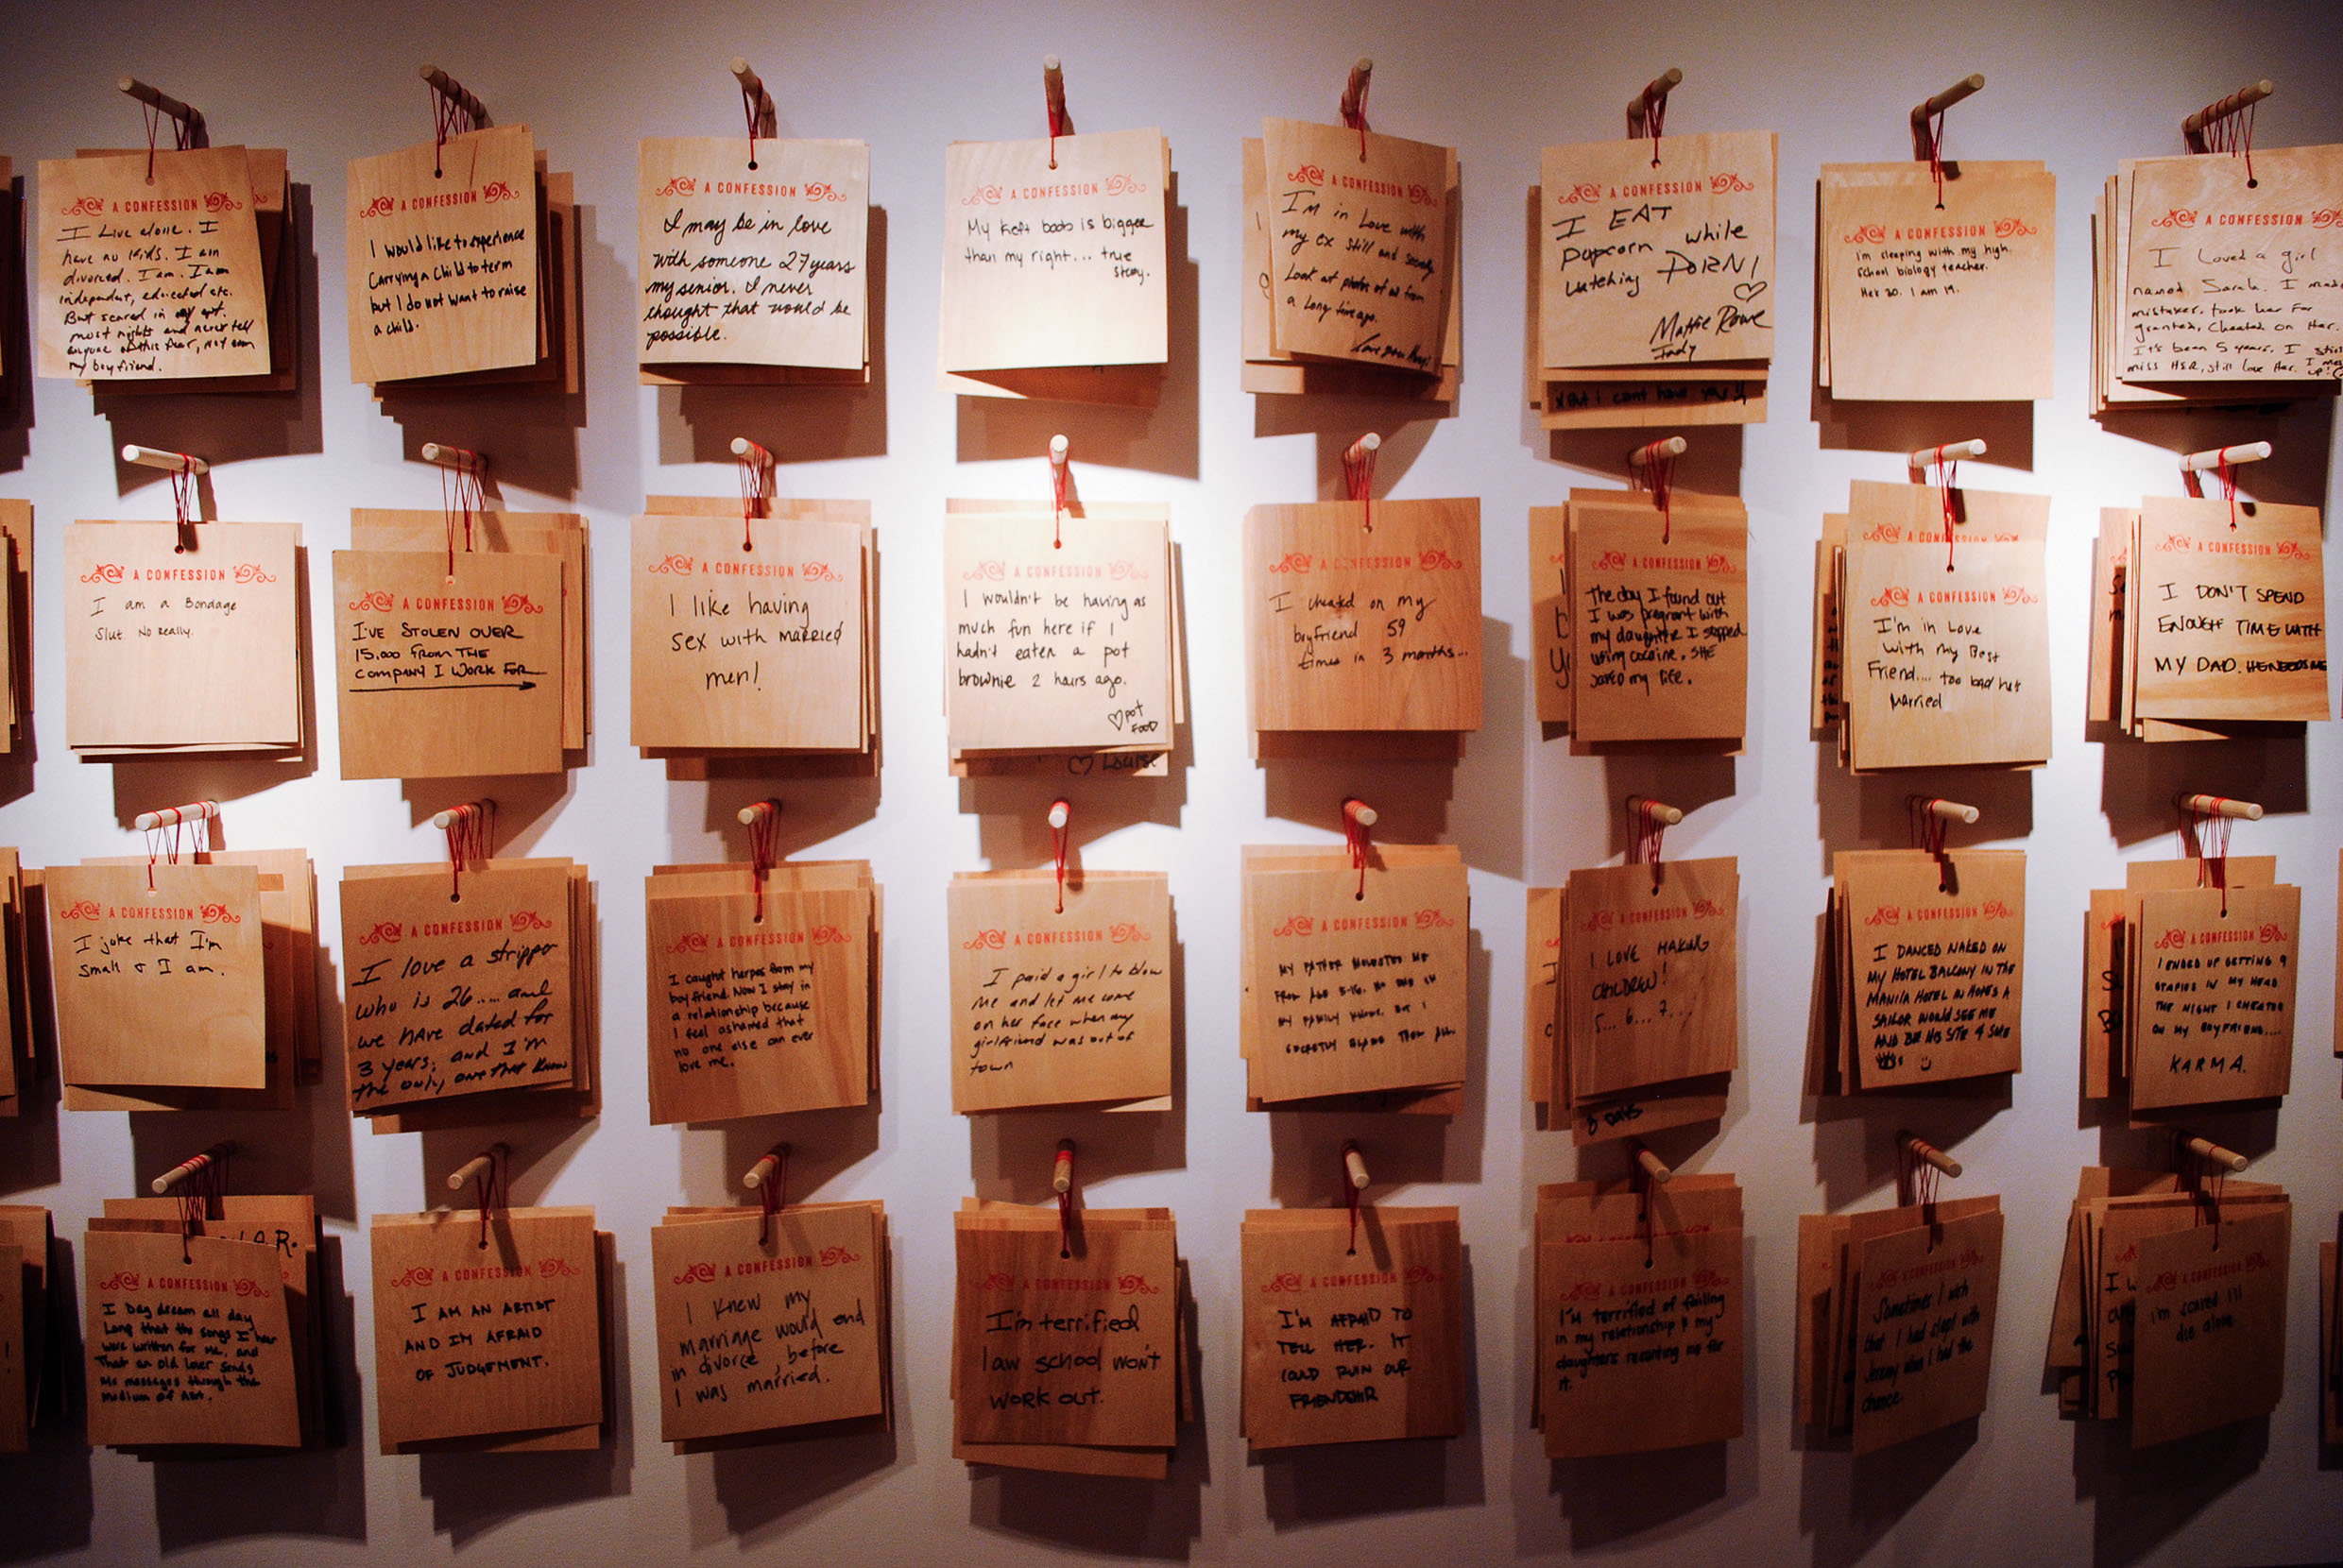 A CONFESSION
I Live alone. I
have no kids. I am
divorced. I am. I am
independent, educated etc.
But scared in my apt.
most nights and never tell
anyone of this fear, not even
my boyfriend.
A CONFESSION
I would like to experience
Carrying a child to term
but I do not want to raise
a child.
A CONFESSION
I may be in love
with someone 27 years
my senior. I never
thought that would be
possible.
A CONFESSION
My left boob is bigger
than my right... true
story.
A CONFESSION
I'm in Love with
my ex still and secretly
Look at photos of us from
a Long time ago.
A CONFESSION
I EAT
popcorn while
watching PORN!
Mattie Rowe
Indy
But i cant have you
A CONFESSION
I'm sleeping with my high
school biology teacher.
He's 30. I am 19.
A CONFESSION
I Loved a girl
named Sarah. I made
mistakes, took her for
granted, Cheated on Her.
It's been 5 years. I still
miss HER, still love Her. I
up!
A CONFESSION
I am a Bondage
Slut. No Really.
A CONFESSION
I'VE STOLEN OVER
15,000 FROM THE
COMPANY I WORK FOR
A CONFESSION
I like having
sex with married
men!
A CONFESSION
I wouldn't be having as
much fun here if I
hadn't eaten a pot
brownie 2 hours ago.
♡ pot
FOOD
♡ Louise
A CONFESSION
I cheated on my
boyfriend 59
times in 3 months...
A CONFESSION
The day I found out
I was pregnant with
my daughter I stopped
using cocaine. SHE
saved my life.
A CONFESSION
A CONFESSION
I'm in Love
with my Best
Friend.... too bad he's
Married
A CONFESSION
I DON'T SPEND
ENOUGH TIME WITH
MY DAD. HE NEEDS ME
A CONFESSION
I joke that I'm
small & I am.
A CONFESSION
I love a stripper
who is 26..... and
we have dated for
3 years; and I'm
the only one that knows
A CONFESSION
I caught herpes from my
boyfriend. Now I stay in
a relationship because
I feel ashamed that
no one else can ever
love me.
A CONFESSION
I paid a girl to blow
me and let me come
on her face when my
girlfriend was out of
town
A CONFESSION
MY FATHER MOLESTED ME
FROM AGE 5-16. NO ONE IN
MY FAMILY KNOWS. BUT I
SECRETLY BLAME THEM ALL.
A CONFESSION
I LOVE MAKING
CHILDREN!
5... 6... 7...
8 DAYS
A CONFESSION
I DANCED NAKED ON
MY HOTEL BALCONY IN THE
MANILA HOTEL IN HOPES A
SAILOR WOULD SEE ME
AND BE HIS
A CONFESSION
I ENDED UP GETTING 9
STAPLES IN MY HEAD
THE NIGHT I CHEATED
ON MY BOYFRIEND....
KARMA.
A CONFESSION
I Day dream all day
Long that the songs I hear
were written for me, and
That an old Lover sends
me messages through the
medium of Art.
A CONFESSION
I AM AN ARTIST
AND IM AFRAID
OF JUDGEMENT.
A CONFESSION
I knew my
marriage would end
in divorce, before
I was married.
A CONFESSION
I'm terrified
law school won't
WORK OUT.
A CONFESSION
I'M AFRAID TO
TELL HER. IT
COULD RUIN OUR
FRIENDSHIP
A CONFESSION
I'm terrified of failing
in my relationship & my
daughters resenting me for
it.
A CONFESSION
Sometimes I wish
that I had slept with
Jeremy when I had the
chance.
A CONFESSION
I'm scared I'll
die alone.